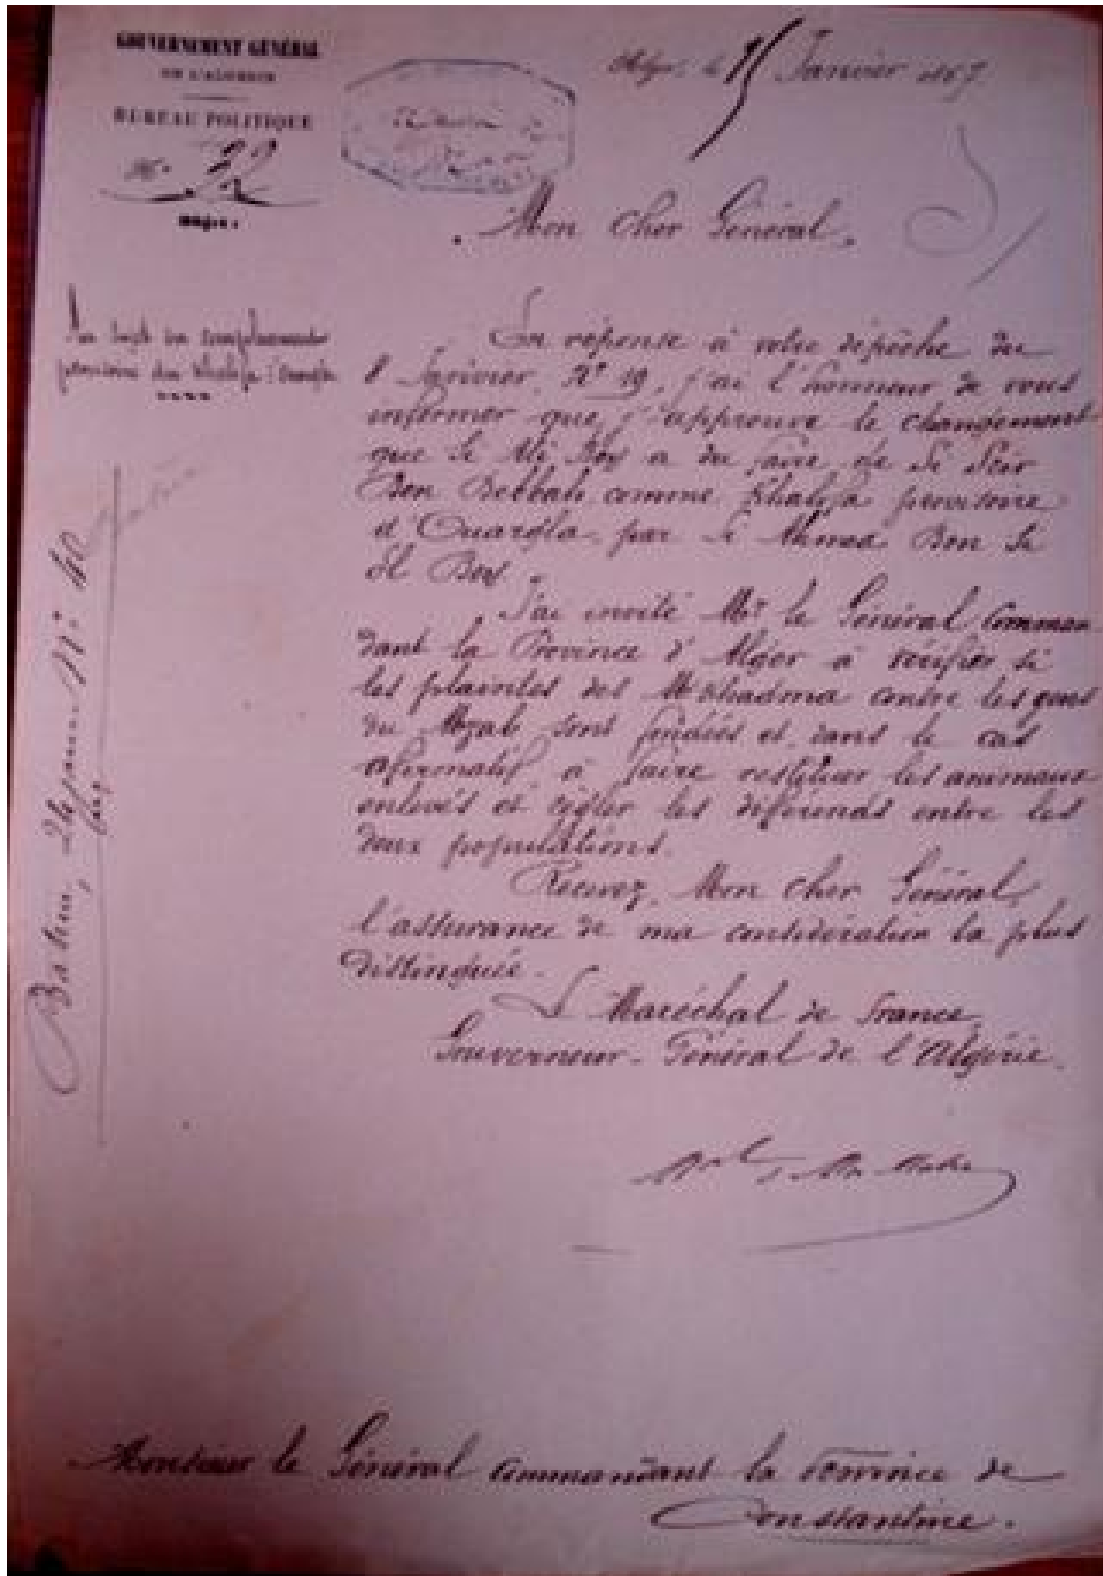 GOUVERNEMENT GÉNÉRAL
DE L'ALGÉRIE
BUREAU POLITIQUE
N°. 22
Alger, le 15 Janvier 1867.
Mon Cher Général,
Au sujet du remplacement
provisoire du Khalifa d'Ouargla
En réponse à votre dépêche du
8 Janvier, N° 19, j'ai l'honneur de vous
informer que j'approuve le changement
que Si Ali Bey a du faire, de Si
Ben Bebbah comme Khalifa provisoire
d'Ouargla, par Si Ahmed Ben Si
El Bey.
J'ai invité Mr. le Général Comman-
dant la Province d'Alger à vérifier si
les plaintes des Mekhadma contre les gens
du Mzab sont fondées et, dans le cas
affirmatif, à faire restituer les animaux
enlevés et régler les différends entre les
deux populations.
Recevez, Mon Cher Général,
l'assurance de ma considération la plus
distinguée.
Le Maréchal de France,
Gouverneur-Général de l'Algérie.
Batna, 24 janv. N° 40
Monsieur le Général Commandant la Province de
Constantine.